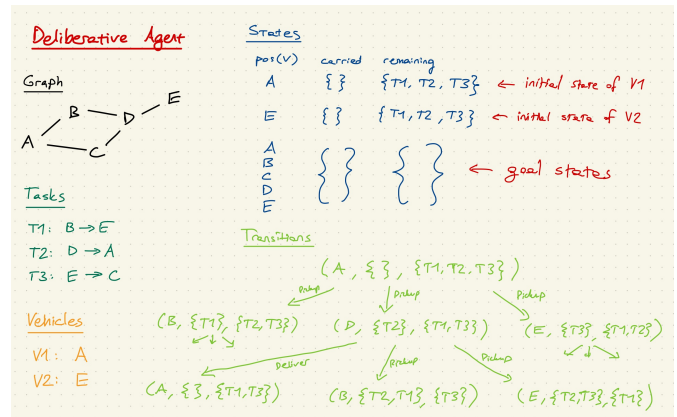 Deliberative Agent
Graph
A
B
C
D
E
Tasks
T1: B → E
T2: D → A
T3: E → C
Vehicles
V1: A
V2: E
States
pos(V) carried remaining
A { } {T1, T2, T3} ← initial state of V1
E { } {T1, T2, T3} ← initial state of V2
A
B
C { } { } ← goal states
D
E
Transitions
(A, { }, {T1, T2, T3})
Pickup Pickup Pickup
(B, {T1}, {T2, T3}) (D, {T2}, {T1, T3}) (E, {T3}, {T1, T2})
Deliver Pickup Pickup
(A, { }, {T1, T3}) (B, {T2, T1}, {T3}) (E, {T2, T3}, {T1})